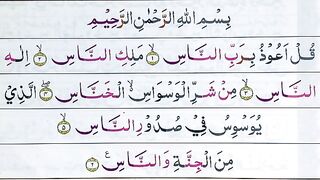 بِسْمِ اللهِ الرَّحْمٰنِ الرَّحِيْمِ
قُلْ اَعُوْذُ بِرَبِّ النَّاسِ ۙ﴿۱﴾ مَلِكِ النَّاسِ ۙ﴿۲﴾ اِلٰهِ
النَّاسِ ۙ﴿۳﴾ مِنْ شَرِّ الْوَسْوَاسِ ۙ الْخَنَّاسِ ۪ۙ﴿۴﴾ الَّذِيْ
يُوَسْوِسُ فِيْ صُدُوْرِ النَّاسِ ۙ﴿۵﴾
مِنَ الْجِنَّةِ وَالنَّاسِ ۧ﴿۶﴾